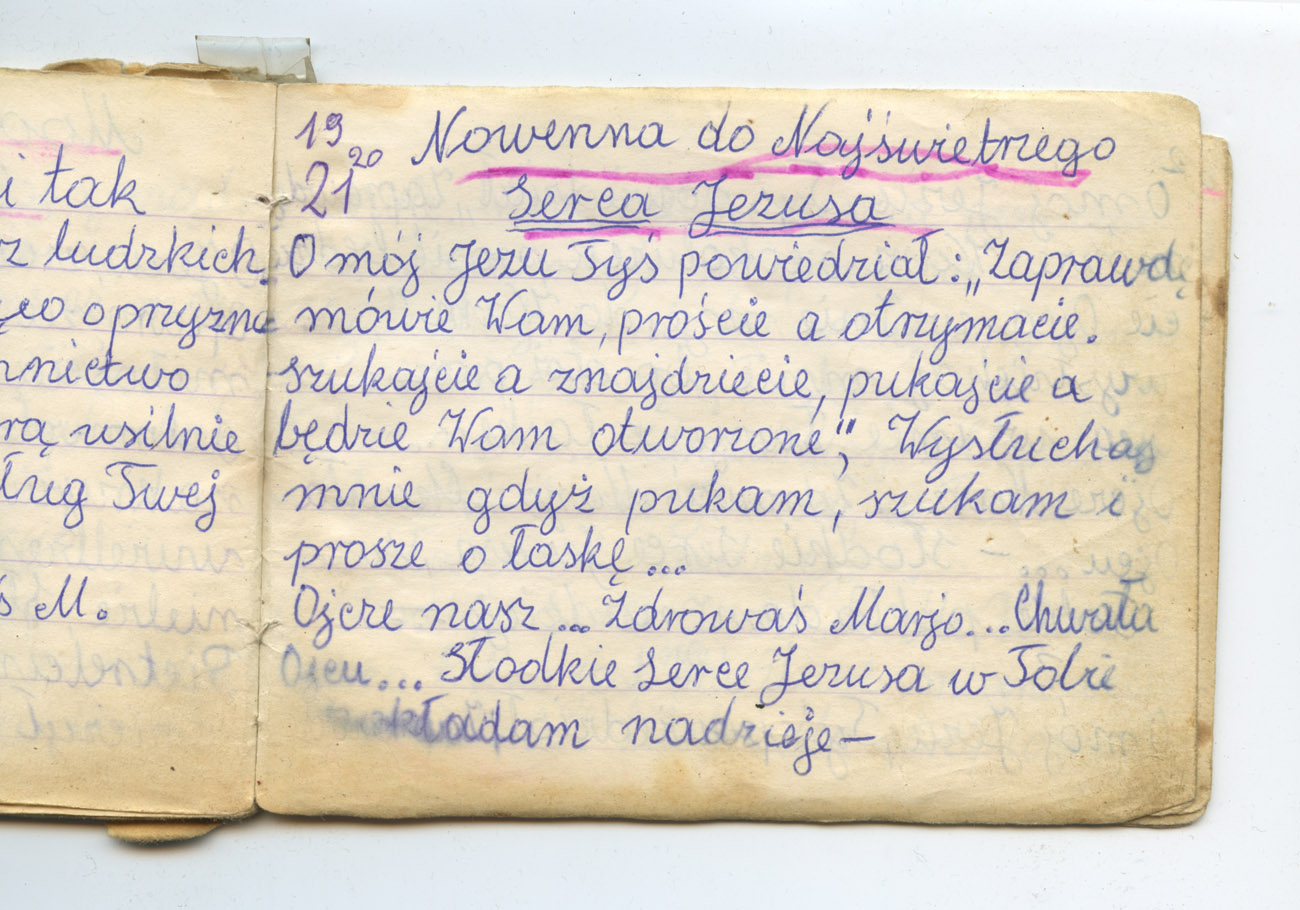 i tak
z ludzkich.
o oprzyzna
nnictwo
rą usilnie
ług Twej
ś M.
19
20
21
Nowenna do Najświetrzego
Serca Jezusa
O mój Jezu Tyś powiedział: „Zaprawdę
mówie Wam, proście a otrzymacie.
szukajcie a znajdziecie, pukajcie a
będzie Wam otworzone”, Wysłuchaj
mnie gdyż pukam, szukam i
prosze o łaskę...
Ojcze nasz... Zdrowaś Marjo... Chwała
Ojcu... Słodkie Serce Jezusa w Tobie
składam nadzieje-